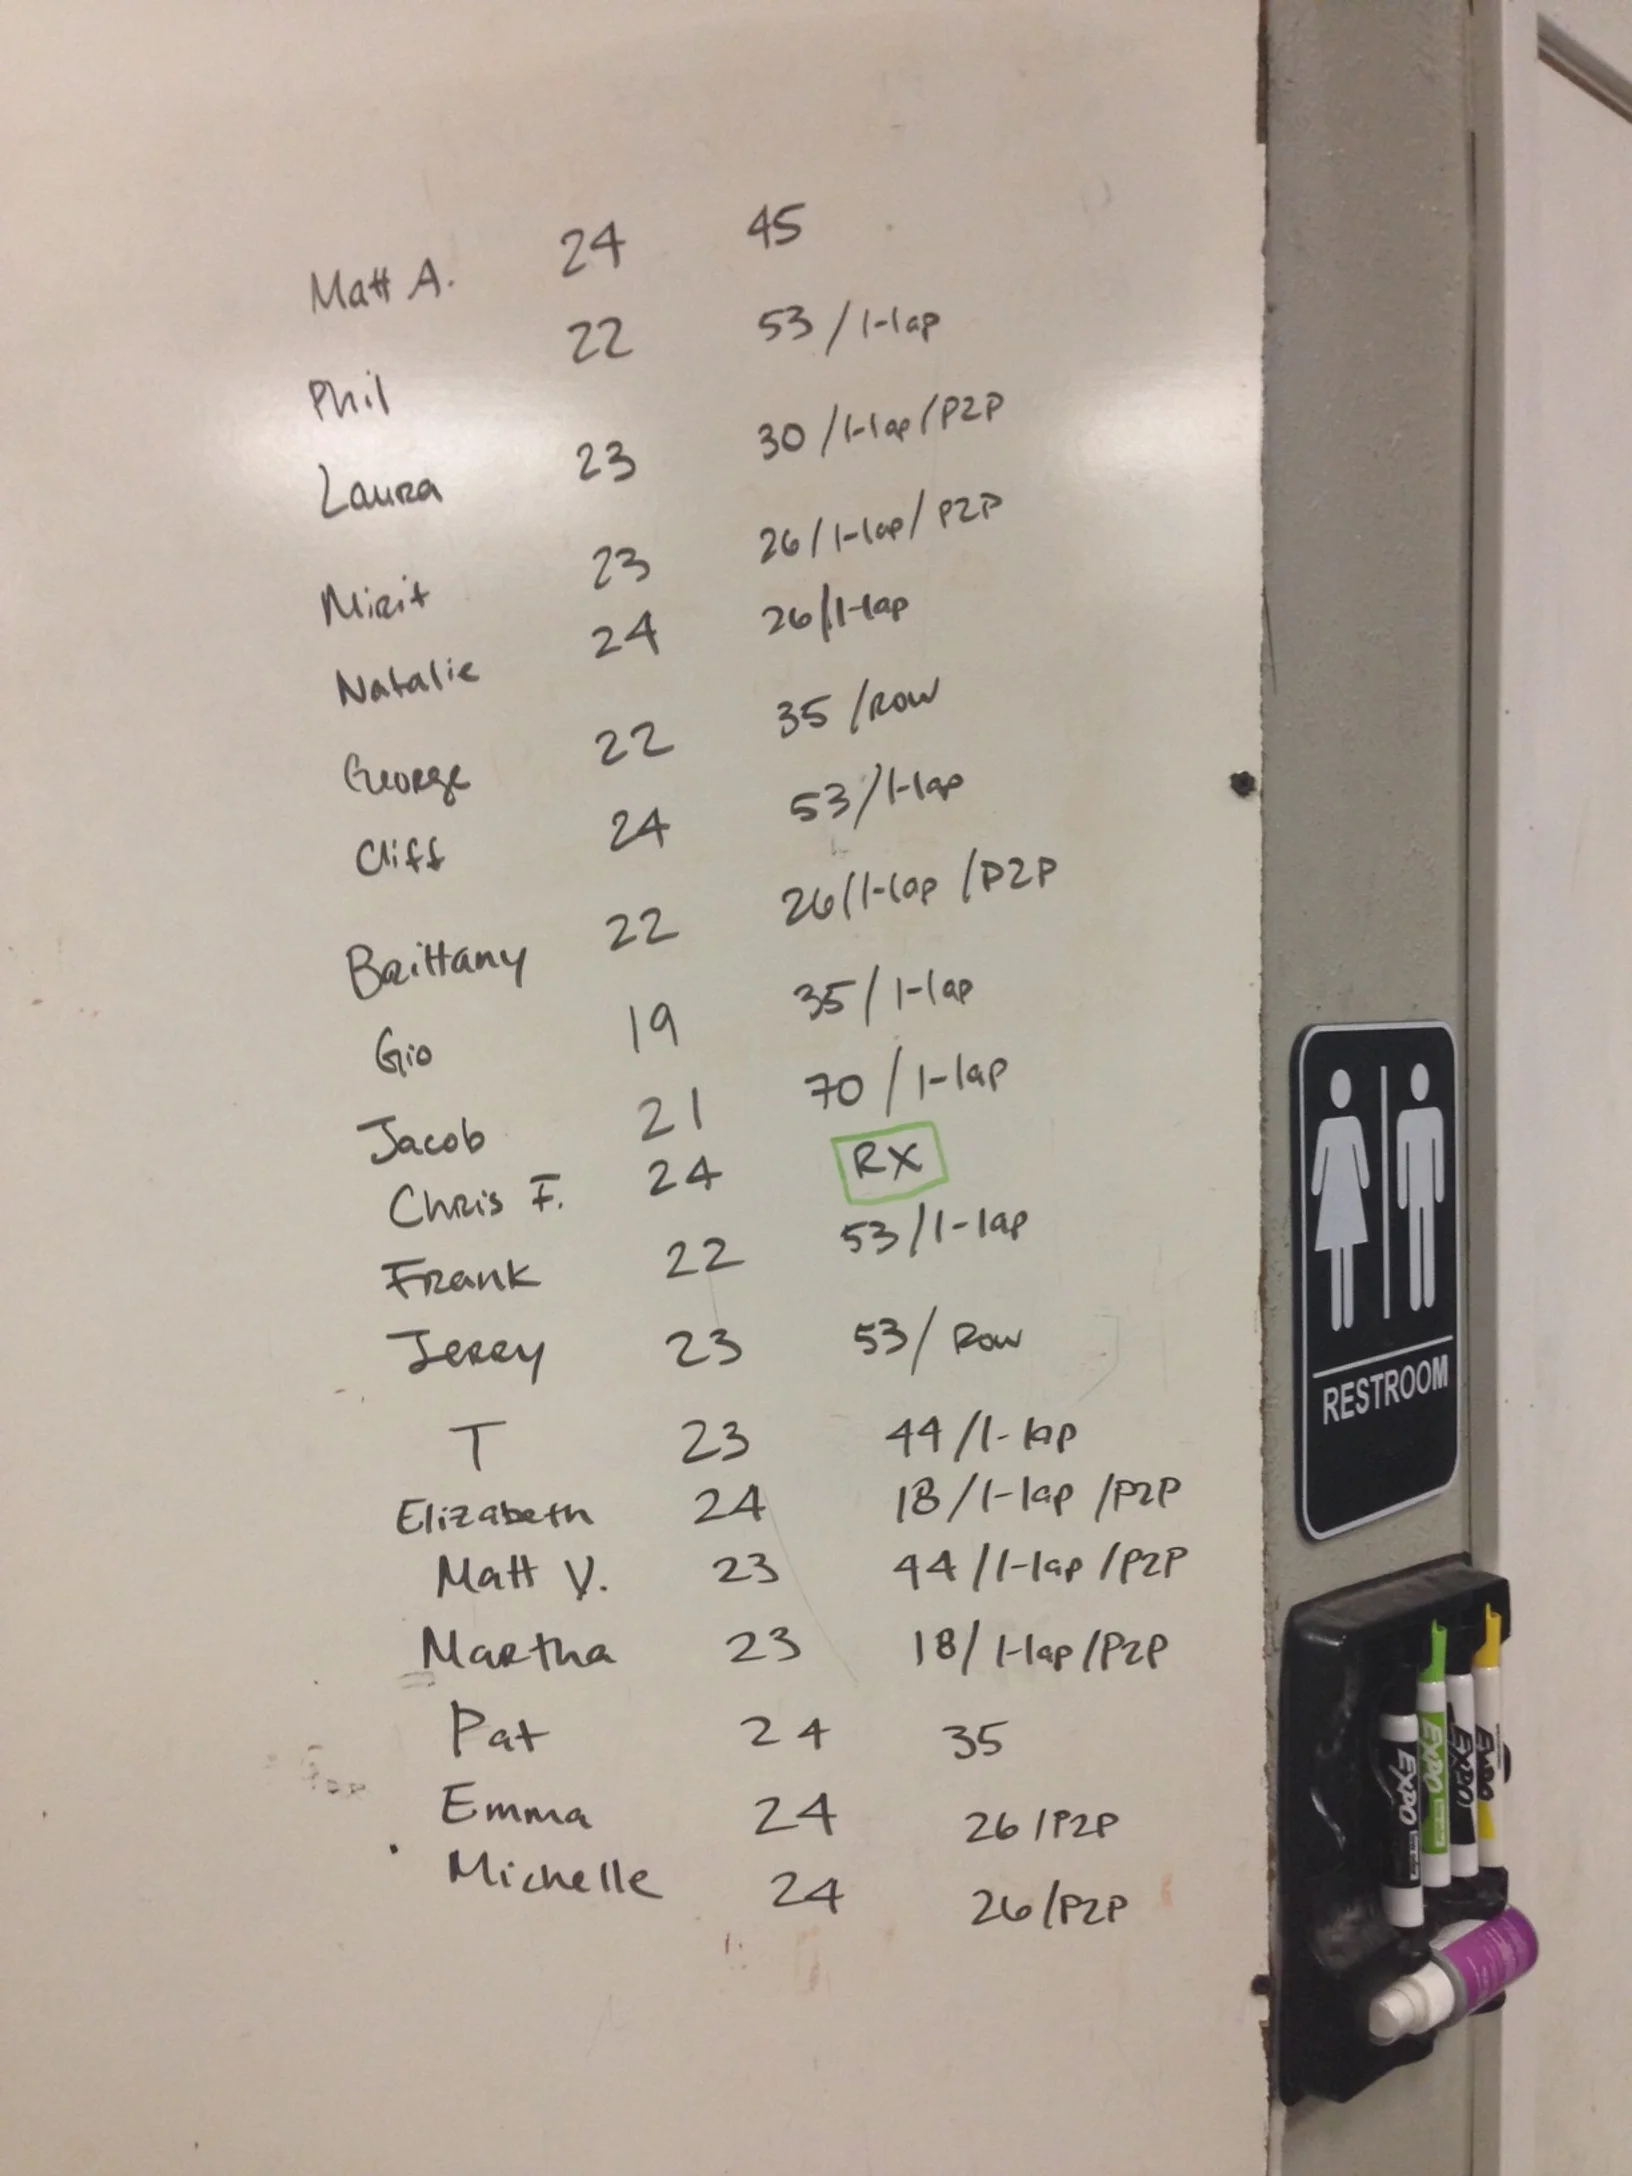 Matt A. 24 45
Phil 22 53 / 1-lap
Laura 23 30 / 1-lap / P2P
Mirit 23 26 / 1-lap / P2P
Natalie 24 26 / 1-lap
George 22 35 / Row
Cliff 24 53 / 1-lap
Brittany 22 26 / 1-lap / P2P
Gio 19 35 / 1-lap
Jacob 21 70 / 1-lap
Chris F. 24 RX
Frank 22 53 / 1-lap
Jerry 23 53 / Row
T 23 44 / 1-lap
Elizabeth 24 18 / 1-lap / P2P
Matt V. 23 44 / 1-lap / P2P
Martha 23 18 / 1-lap / P2P
Pat 24 35
Emma 24 26 / P2P
Michelle 24 26 / P2P
RESTROOM
EXPO
EXPO
EXPO
EXPO